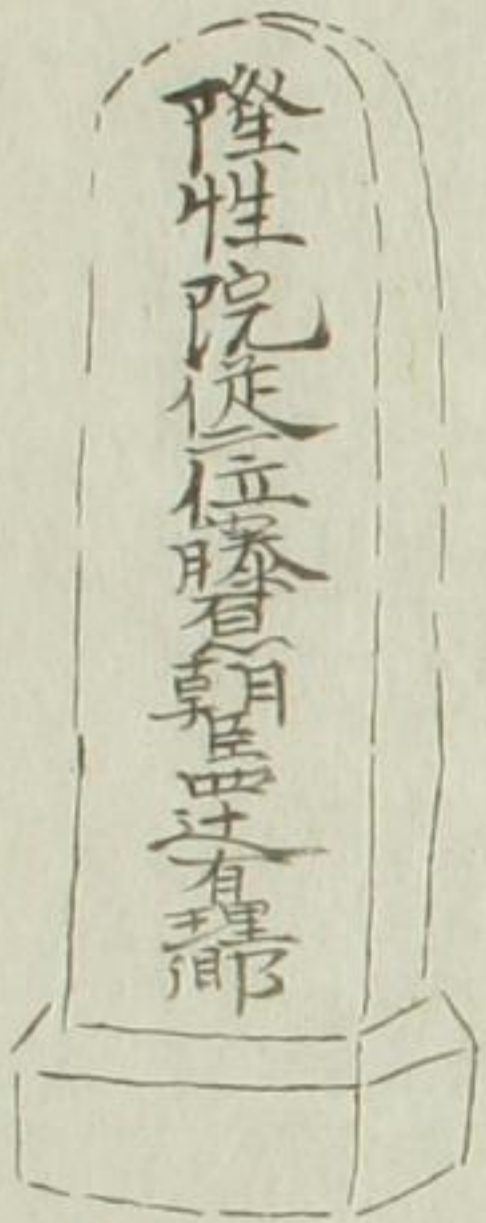 隆性院従二位藤原朝臣四辻有理卿